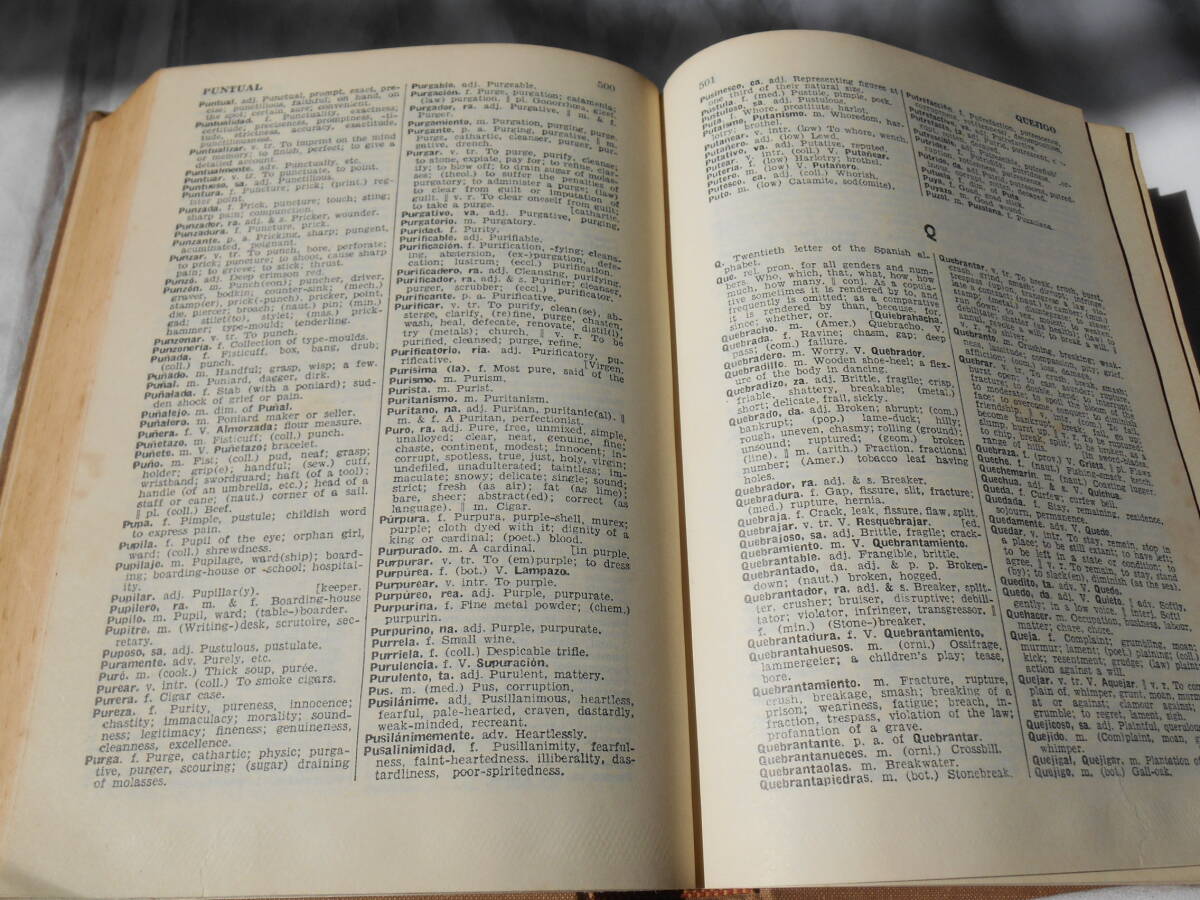 PUNTUAL
500
Puntual, adj. Punctual, prompt, exact, pre-
cise, punctilious, faithful; on hand, on
the spot; certain, sure; convenient.
Puntualidad, f. Punctuality, exactness;
certitude, preciseness, promptness, -ti-
tude, strictness, accuracy, exactitude,
punctiliousness.
Puntualizar, v. tr. To imprint on the mind
or memory; to finish, perfect; to give a
detailed account.
Puntualmente, adv. Punctually, etc.
Puntuar, v. tr. To punctuate, to point.
Puntuoso, sa, adj. Punctilious.
Puntura, f. Puncture; prick; (print.) reg-
ister point.
Punzada, f. Prick, puncture; touch; sting;
sharp pain; compunction.
Punzador, ra, adj. & s. Pricker, wounder.
Punzadura, f. Puncture, prick.
Punzante, p. a. Pricking, sharp; pungent,
acuminated, poignant.
Punzar, v. tr. To punch, bore, perforate;
to prick; puncture; to shoot, cause sharp
pain; to grieve; to stick, thrust.
Punzó, adj. Deep crimson red.
Punzón, m. Punch(eon); puncher, driver,
graver, bodkin; counter-sink; (mech.)
stamp(er), prick(-punch), pricker, point,
die, piercer; broach; (naut.) pin; (min.)
gad; stilet(to), stylet; (mas.) prick-
hammer; type-mould; tenderling.
Punzonar, v. tr. To punch.
Punzonería, f. Collection of type-moulds.
Puñada, f. Fisticuff, box, bang, drub;
(coll.) punch.
Puñado, m. Handful; grasp, wisp; a few.
Puñal, m. Poniard, dagger, dirk.
Puñalada, f. Stab (with a poniard); sud-
den shock of grief or pain.
Puñalejo, m. dim. of Puñal.
Puñalero, m. Poniard maker or seller.
Puñera, f. V. Almorzada; flour measure.
Puñetazo, m. Fisticuff; (coll.) punch.
Puñete, m. V. Puñetazo; bracelet.
Puño, m. Fist; (coll.) pud, neaf; grasp;
holder; grip(e); handful; (sew.) cuff,
wristband; swordguard; haft (of a tool);
handle (of an umbrella, etc.); head of a
staff or cane; (naut.) corner of a sail.
‖ pl. (coll.) Beef.
Pupa, f. Pimple, pustule; childish word
to express pain.
Pupila, f. Pupil of the eye; orphan girl,
ward; (coll.) shrewdness.
Pupilaje, m. Pupilage, ward(ship); board-
ing; boarding-house or -school; hospital-
ity.
Pupilar, adj. Pupillar(y). [keeper.
Pupilero, ra, m. & f. Boarding-house
Pupilo, m. Pupil, ward; (table-)boarder.
Pupitre, m. (Writing-)desk, scrutoire, sec-
retary.
Puposo, sa, adj. Pustulous, pustulate.
Puramente, adv. Purely, etc.
Puré, m. (cook.) Thick soup, purée.
Purear, v. intr. (coll.) To smoke cigars.
Purera, f. Cigar case.
Pureza, f. Purity, pureness, innocence;
chastity; immaculacy; morality; sound-
ness; legitimacy; fineness; genuineness,
cleanness, excellence.
Purga, f. Purge, cathartic; physic; purga-
tive, purger, scouring; (sugar) draining
of molasses.
Purgable, adj. Purgeable.
Purgación, f. Purge, purgation; catamenia;
(law) purgation. ‖ pl. Gonorrhea, gleet.
Purgador, ra, adj. Purgative. ‖ m. & f.
Purger.
Purgamiento, m. Purgation, purging, purge.
Purgante, p. a. Purging, purgative. ‖ m.
Purge, cathartic, cleanser, purgative, pur-
native, drench.
Purgar, v. tr. To purge, purify, cleanse;
to atone, expiate, pay for; to refine, clar-
ify; to blow off; to drain sugar of molas-
ses; (theol.) to suffer the penalties of
purgatory; to administer a purge; (law)
to clear from guilt or imputation of
guilt. ‖ v. r. To clear oneself from guilt;
to take a purge. [cathartic.
Purgativo, va, adj. Purgative, purging,
Purgatorio, m. Purgatory.
Puridad, f. Purity.
Purificable, adj. Purifiable.
Purificación, f. Purification, -fying; cleans-
ing, abstersion, (ex-)purgation, defe-
cation; lustrum; (eccl.) purification.
Purificadero, ra, adj. Cleansing, purifying.
Purificador, ra, adj. & s. Purifier; cleanser,
purger, scrubber; (eccl.) purificator.
Purificante, p. a. Purificative.
Purificar, v. tr. To purify, clean(se), ab-
sterge, clarify, (re)fine, purge, chasten,
wash, heal, defecate, renovate, distil(l),
try (metals); church. ‖ v. r. To be
purified, cleansed; purge, refine.
Purificatorio, ria, adj. Purificatory, pu-
rificative. [Virgen.
Purísima (la), f. Most pure, said of the
Purismo, m. Purism.
Purista, m. Purist.
Puritanismo, m. Puritanism.
Puritano, na, adj. Puritan, puritanic(al). ‖
m. & f. A Puritan, perfectionist.
Puro, ra, adj. Pure, free, unmixed, simple,
unalloyed; clear, neat, genuine, fine;
chaste, continent, modest; innocent; in-
corrupt, spotless, true, just, holy, virgin;
undefiled, unadulterated; taintless; im-
maculate; snowy; delicate; single; sound;
strict; fresh (as air); fat (as lime);
bare, sheer; abstract(ed); correct (as
language). ‖ m. Cigar.
Púrpura, f. Purpura, purple-shell, murex;
purple; cloth dyed with it; dignity of a
king or cardinal; (poet.) blood.
Purpurado, m. A cardinal. [in purple.
Purpurar, v. tr. To (em)purple; to dress
Purpúrea, f. (bot.) V. Lampazo.
Purpurear, v. intr. To purple.
Purpúreo, rea, adj. Purple, purpurate.
Purpurina, f. Fine metal powder; (chem.)
purpurin.
Purpurino, na, adj. Purple, purpurate.
Purrela, f. Small wine.
Purriela, f. (coll.) Despicable trifle.
Purulencia, f. V. Supuración.
Purulento, ta, adj. Purulent, mattery.
Pus, m. (med.) Pus, corruption.
Pusilánime, adj. Pusillanimous, heartless,
fearful, pale-hearted, craven, dastardly,
weak-minded, recreant.
Pusilánimemente, adv. Heartlessly.
Pusalinimidad, f. Pusillanimity, fearful-
ness, faint-heartedness, illiberality, das-
tardliness, poor-spiritedness.
501
QUEJIGO
Pusinesco, ca, adj. Representing figures at
one third of their natural size.
Pústula, f. (med.) Pustule, pimple, pock.
Pustuloso, sa, adj. Pustulous.
Puta, f. Whore, prostitute, harlot.
Putaísmo, Putanismo, m. Whoredom, har-
lotry; brothel.
Putañear, v. intr. (low) To whore, wench.
Putañero, adj. (low) Lewd.
Putativo, va, adj. Putative, reputed.
Putear, v. intr. (coll.) V. Putañear.
Putería, f. (low) Harlotry; brothel.
Putero, m. (low) V. Putañero.
Putesco, ca, adj. (coll.) Whorish.
Puto, m. (low) Catamite, sod(omite).
Putrefacción, f. Putrefaction,
Puya, f. Goad
Puyazo, m. Goad wound.
Puzol, m. Puzolana, f. Puzzolana.
Q
Q. Twentieth letter of the Spanish al-
phabet.
Que, rel. pron. for all genders and num-
bers. Who, which, that, what, how, how
much, how many. ‖ conj. As a copula-
tive sometimes it is rendered by to, and
frequently is omitted; as a comparative
it is rendered by than, because, for,
since; whether, or. [Quebrahacha.
Quebracho, m. (Amer.) Quebracho, V.
Quebrada, f. Ravine; chasm, gap; deep
pass; (com.) failure.
Quebradero, m. Worry. V. Quebrador.
Quebradillo, m. Wooden shoe-heel; a flex-
ure of the body in dancing.
Quebradizo, za, adj. Brittle, fragile; crisp,
friable, shattery, breakable; (metal.)
short; delicate, frail, sickly.
Quebrado, da, adj. Broken; abrupt; (com.)
bankrupt; (pop.) lame-duck; hilly;
rough, uneven, chasmy; rolling (ground);
unsound; ruptured; (geom.) broken
(line). ‖ m. (arith.) Fraction, fractional
number; (Amer.) tobacco leaf having
holes.
Quebrador, ra, adj. & s. Breaker.
Quebradura, f. Gap, fissure, slit, fracture;
(med.) rupture, hernia.
Quebraja, f. Crack, leak, fissure, flaw, split.
Quebrajar, v. tr. V. Resquebrajar. [ed.
Quebrajoso, sa, adj. Brittle, fragile; crack-
Quebramiento, m. V. Quebrantamiento.
Quebrantable, adj. Frangible, brittle.
Quebrantado, da, adj. & p. p. Broken-
down; (naut.) broken, hogged.
Quebrantador, ra, adj. & s. Breaker, split-
ter, crusher; bruiser, disruptive; debili-
tator; violator, infringer, transgressor. ‖
f. (min.) (Stone-)breaker.
Quebrantadura, f. V. Quebrantamiento.
Quebrantahuesos, m. (orni.) Ossifrage,
lammergeier; a children's play; tease,
bore.
Quebrantamiento, m. Fracture, rupture,
crush, breakage, smash; breaking of a
prison; weariness, fatigue; breach, in-
fraction, trespass, violation of the law;
profanation of a grave.
Quebrantante, p. a. of Quebrantar.
Quebrantanueces, m. (orni.) Crossbill.
Quebrantaolas, m. Breakwater.
Quebrantapiedras, m. (bot.) Stonebreak.
Quebrantar, v. tr. To break, crush, burst,
Quebranto, m. Crushing, breaking; weak-
ness, lassitude; compassion, pity, grief,
affliction; loss, damage.
Quebrar, v. tr. To break, crush, smash;
range of hills. [in sword-blades.
Quebraza, f. (prov.) V. Grieta. ‖ pl. Flaws
Queche, f. (naut.) Fishing-smack, ketch.
Quechemarín, m. (naut.) Coasting lugger.
Quechua, adj. & s. V. Quichua.
Queda, f. Curfew; curfew bell.
Quedada, f. Stay, remaining, residence,
sojourn, permanence.
Quedamente, adv. V. Quedo.
Quedar, v. intr. To stay, remain, stop in
a place; to be still extant; to have left;
to be left in a state or condition; to
agree. ‖ v. r. To remain, to stay, stand
(by); to slack(en), diminish (as the sea).
Quedito, ta, adv. V. Quedo.
Quedo, da, adj. V. Quieto. ‖ adv. Softly,
gently; in a low voice. ‖ interj. Soft!
Quehacer, m. Occupation, business, labour,
matter; chare, chore.
Queja, f. Complaint; grumbling, moan;
murmur; lament; (poet.) plaining; (coll.)
kick; resentment; grudge; (law) plaint;
action against a will.
Quejar, v. tr. V. Aquejar. ‖ v. r. To com-
plain of, whimper, grunt, moan, murmur
at or against; clamour against,
grumble; to regret, lament, sigh.
Quejicoso, sa, adj. Plaintful, querulous.
Quejido, m. (Com)plaint, moan,
whimper.
Quejigal, Quejigar, m. Plantation of
Quejigo, m. (bot.) Gall-oak.